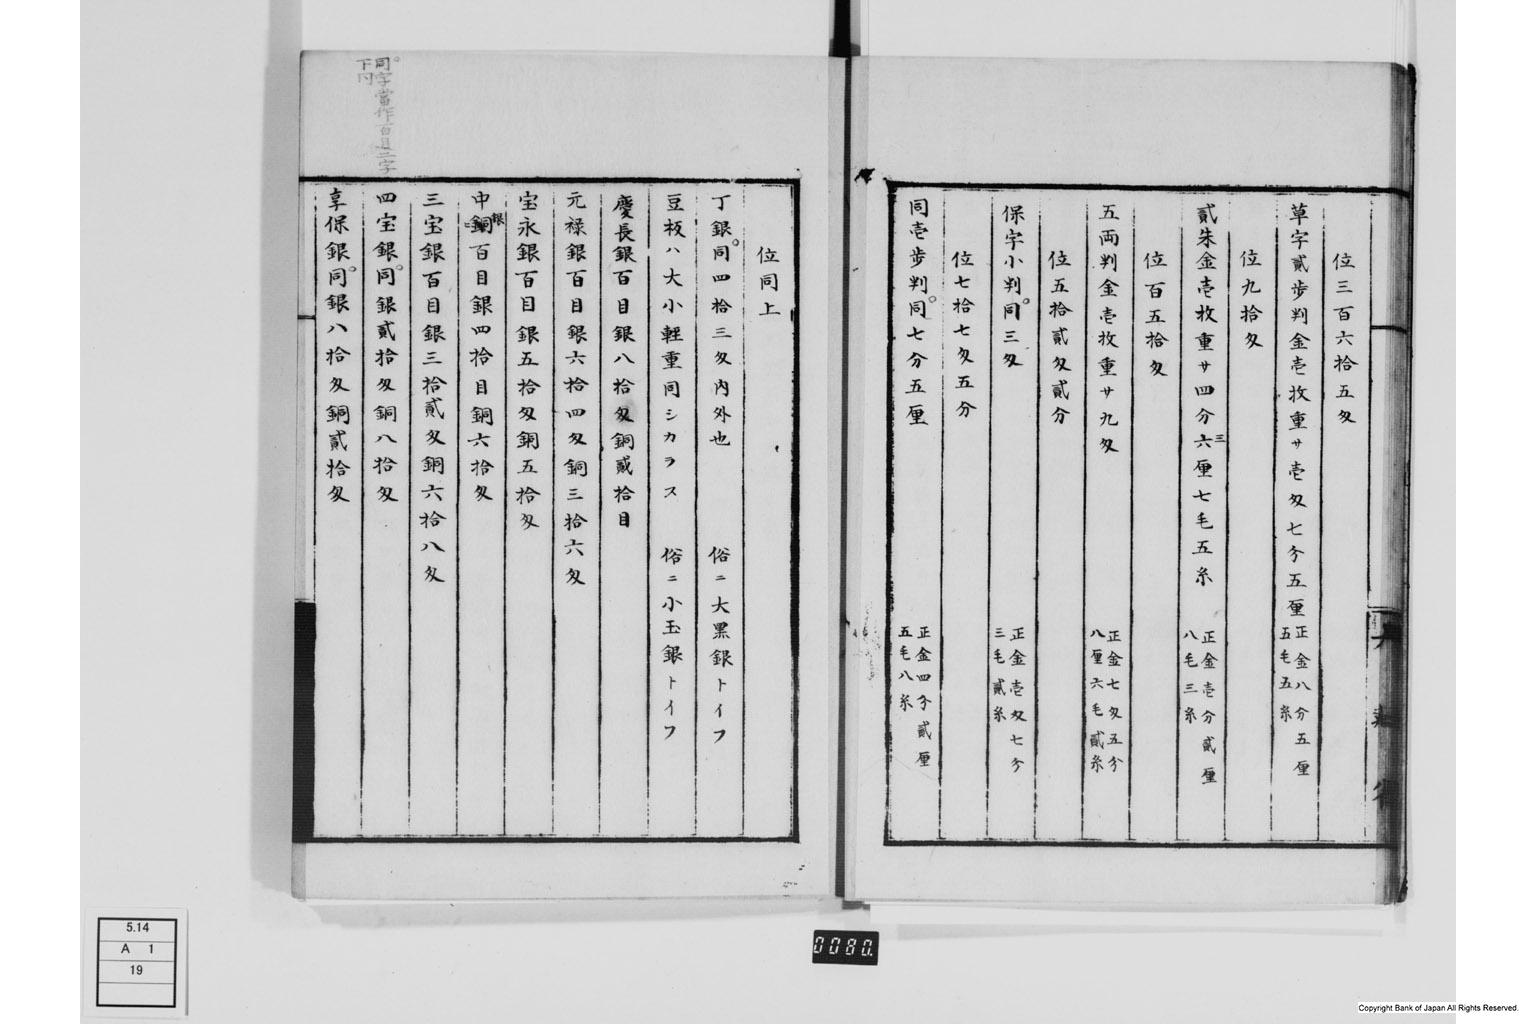 位三百六拾五匁
草字貳歩判金壱枚重サ壱匁七分五厘
正金八分五厘
五毛五糸
位九拾匁
貳朱金壱枚重サ四分六厘七毛五糸
三
正金壱分貳厘
八毛三糸
位百五拾匁
五両判金壱枚重サ九匁
正金七匁五分
八厘六毛貳糸
位五拾貳匁貳分
保字小判同三匁
正金壱匁七分
三毛貳糸
位七拾七匁五分
同壱歩判同七分五厘
正金四分貳厘
五毛八糸
同字當作百目二字
下同
位同上
丁銀同四拾三匁内外也 俗ニ大黒銀トイフ
豆板ハ大小軽重同シカラス 俗ニ小玉銀トイフ
慶長銀百目銀八拾匁銅貳拾目
元禄銀百目銀六拾四匁銅三拾六匁
宝永銀百目銀五拾匁銅五拾匁
中銅百目銀四拾目銅六拾匁
銀
三宝銀百目銀三拾貳匁銅六拾八匁
四宝銀同銀貳拾匁銅八拾匁
享保銀同銀八拾匁銅貳拾匁
5.14
A 1
19
0080
Copyright Bank of Japan All Rights Reserved.